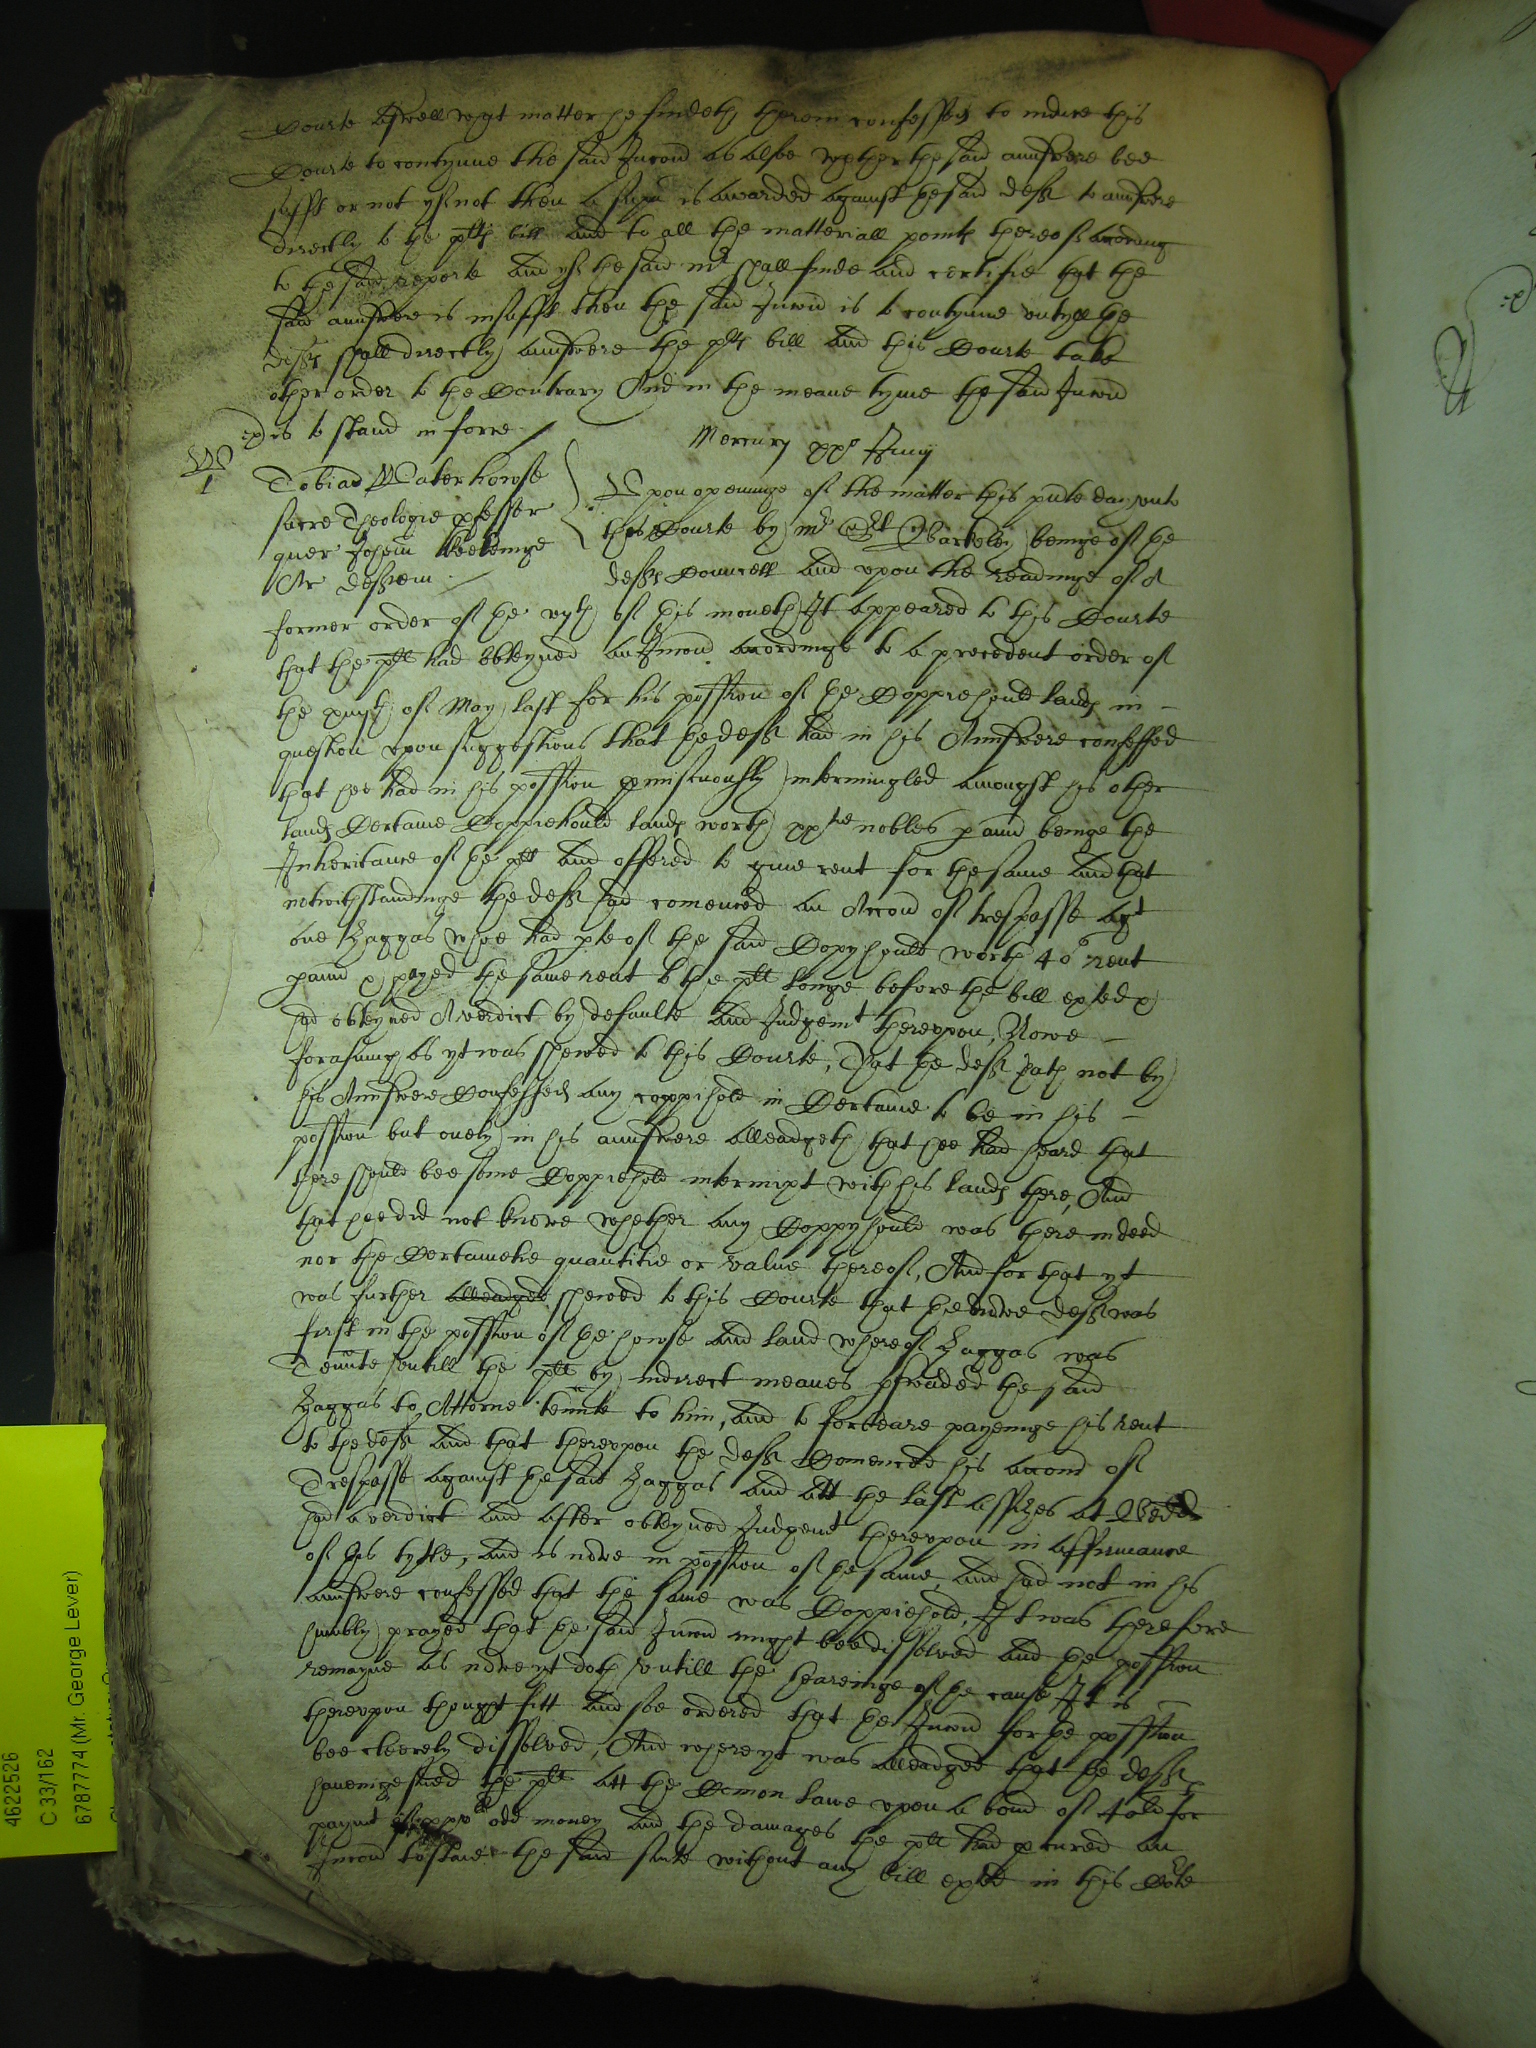 Courte aswell what matter he findeth therein confessed to induce this
Courte to contynue the said Iniuncion as alsoe whether the said aunswere bee
suffit or not yf not then a supa is awarded against the said deft to aunswere
directly to the plts bill and to all the materiall points thereof according
to the said reporte And yf the said mr shall finde and certifie that the
said aunswere is insuffit then the said Iniuncion is to contynue untyll the
defts shall directly aunswere the plts bill and this Courte take
other order to the Contrary And in the meane tyme the said Iniuncion
is to stand in force
Mercurij xxo Junij
Tobias Waterhowse
sacre Theologie pfessor
quer Johem Keelinge
Ar deftem
Upon openinge of the matter this pnte day unto
this Courte by mr Barkeley beinge of the
defts Councell and upon the readinge of a
former order of the vijth of this moneth It appeared to this Courte
that the plt had obteyned an Iniuncion accordinge to a precedent order of
the of May last for his possession of the Coppiehould lands in
question upon suggestions that the deft had in his Aunswere confessed
that hee had in his possession pmiscuously intermingled amongst his other
lands Certaine Coppiehould lands worth xxtie nobles p ann beinge the
Inheritance of the plt and offered to give rent for the same and that
notwithstandinge the deft had comenced an Accion of trespasse agt
one Haggas whoe had pte of the said Copyhould worth 40s rent
p ann & payed the same rent to the plt longe before the bill exted &
had obteyned A verdict by defaulte and Judgemt thereupon, Nowe
forasmuch as yt was shewed to this Courte, That the deft hath not by
his Aunswere Confessed any coppihold in Certaine to be in his
possession but onely in his aunswere alleadgeth that hee had heard that
there should bee some Coppiehold intermixt with his lands there, And
that hee did not knowe whether any Coppyhould was there indeed
nor the Certaineties quantitie or value thereof, And for that yt
was further alleadged shewed to this Courte that the nowe deft was
first in the possession of the howse and land whereof Haggas was
Tennte untill the plt by indirect meanes pswaded the said
Haggas to Attorne tennte to him, and to forbeare payeinge his rent
to the deft and that thereupon the deft Comenced his accion of
Trespasse against the said Haggas and att the last assizes at Bedd
had a verdict and after obteyned Judgemt thereupon in affirmance
of his tytle, and is nowe in possession of the same, and had not in his
aunswere confessed that the same was Coppiehold, It was therefore
humbly prayed that the said Iniuncion might bee dissolved and the possession
remayne as nowe yt doth untill the heareinge of the cause It is
thereupon thought fitt and soe ordered that the Iniuncion for the possession
bee cleerely dissolved, And where yt was alleadged that the deft
haveinge sued the plt att the Comon Lawe upon a bond of 40li for
paymt of xxli odd money and the damages the plt had pcured an
Iniuncion to staie the said suite without any bill exted in this Courte
4622526
C 33/162
6787774 (Mr. George Lever)